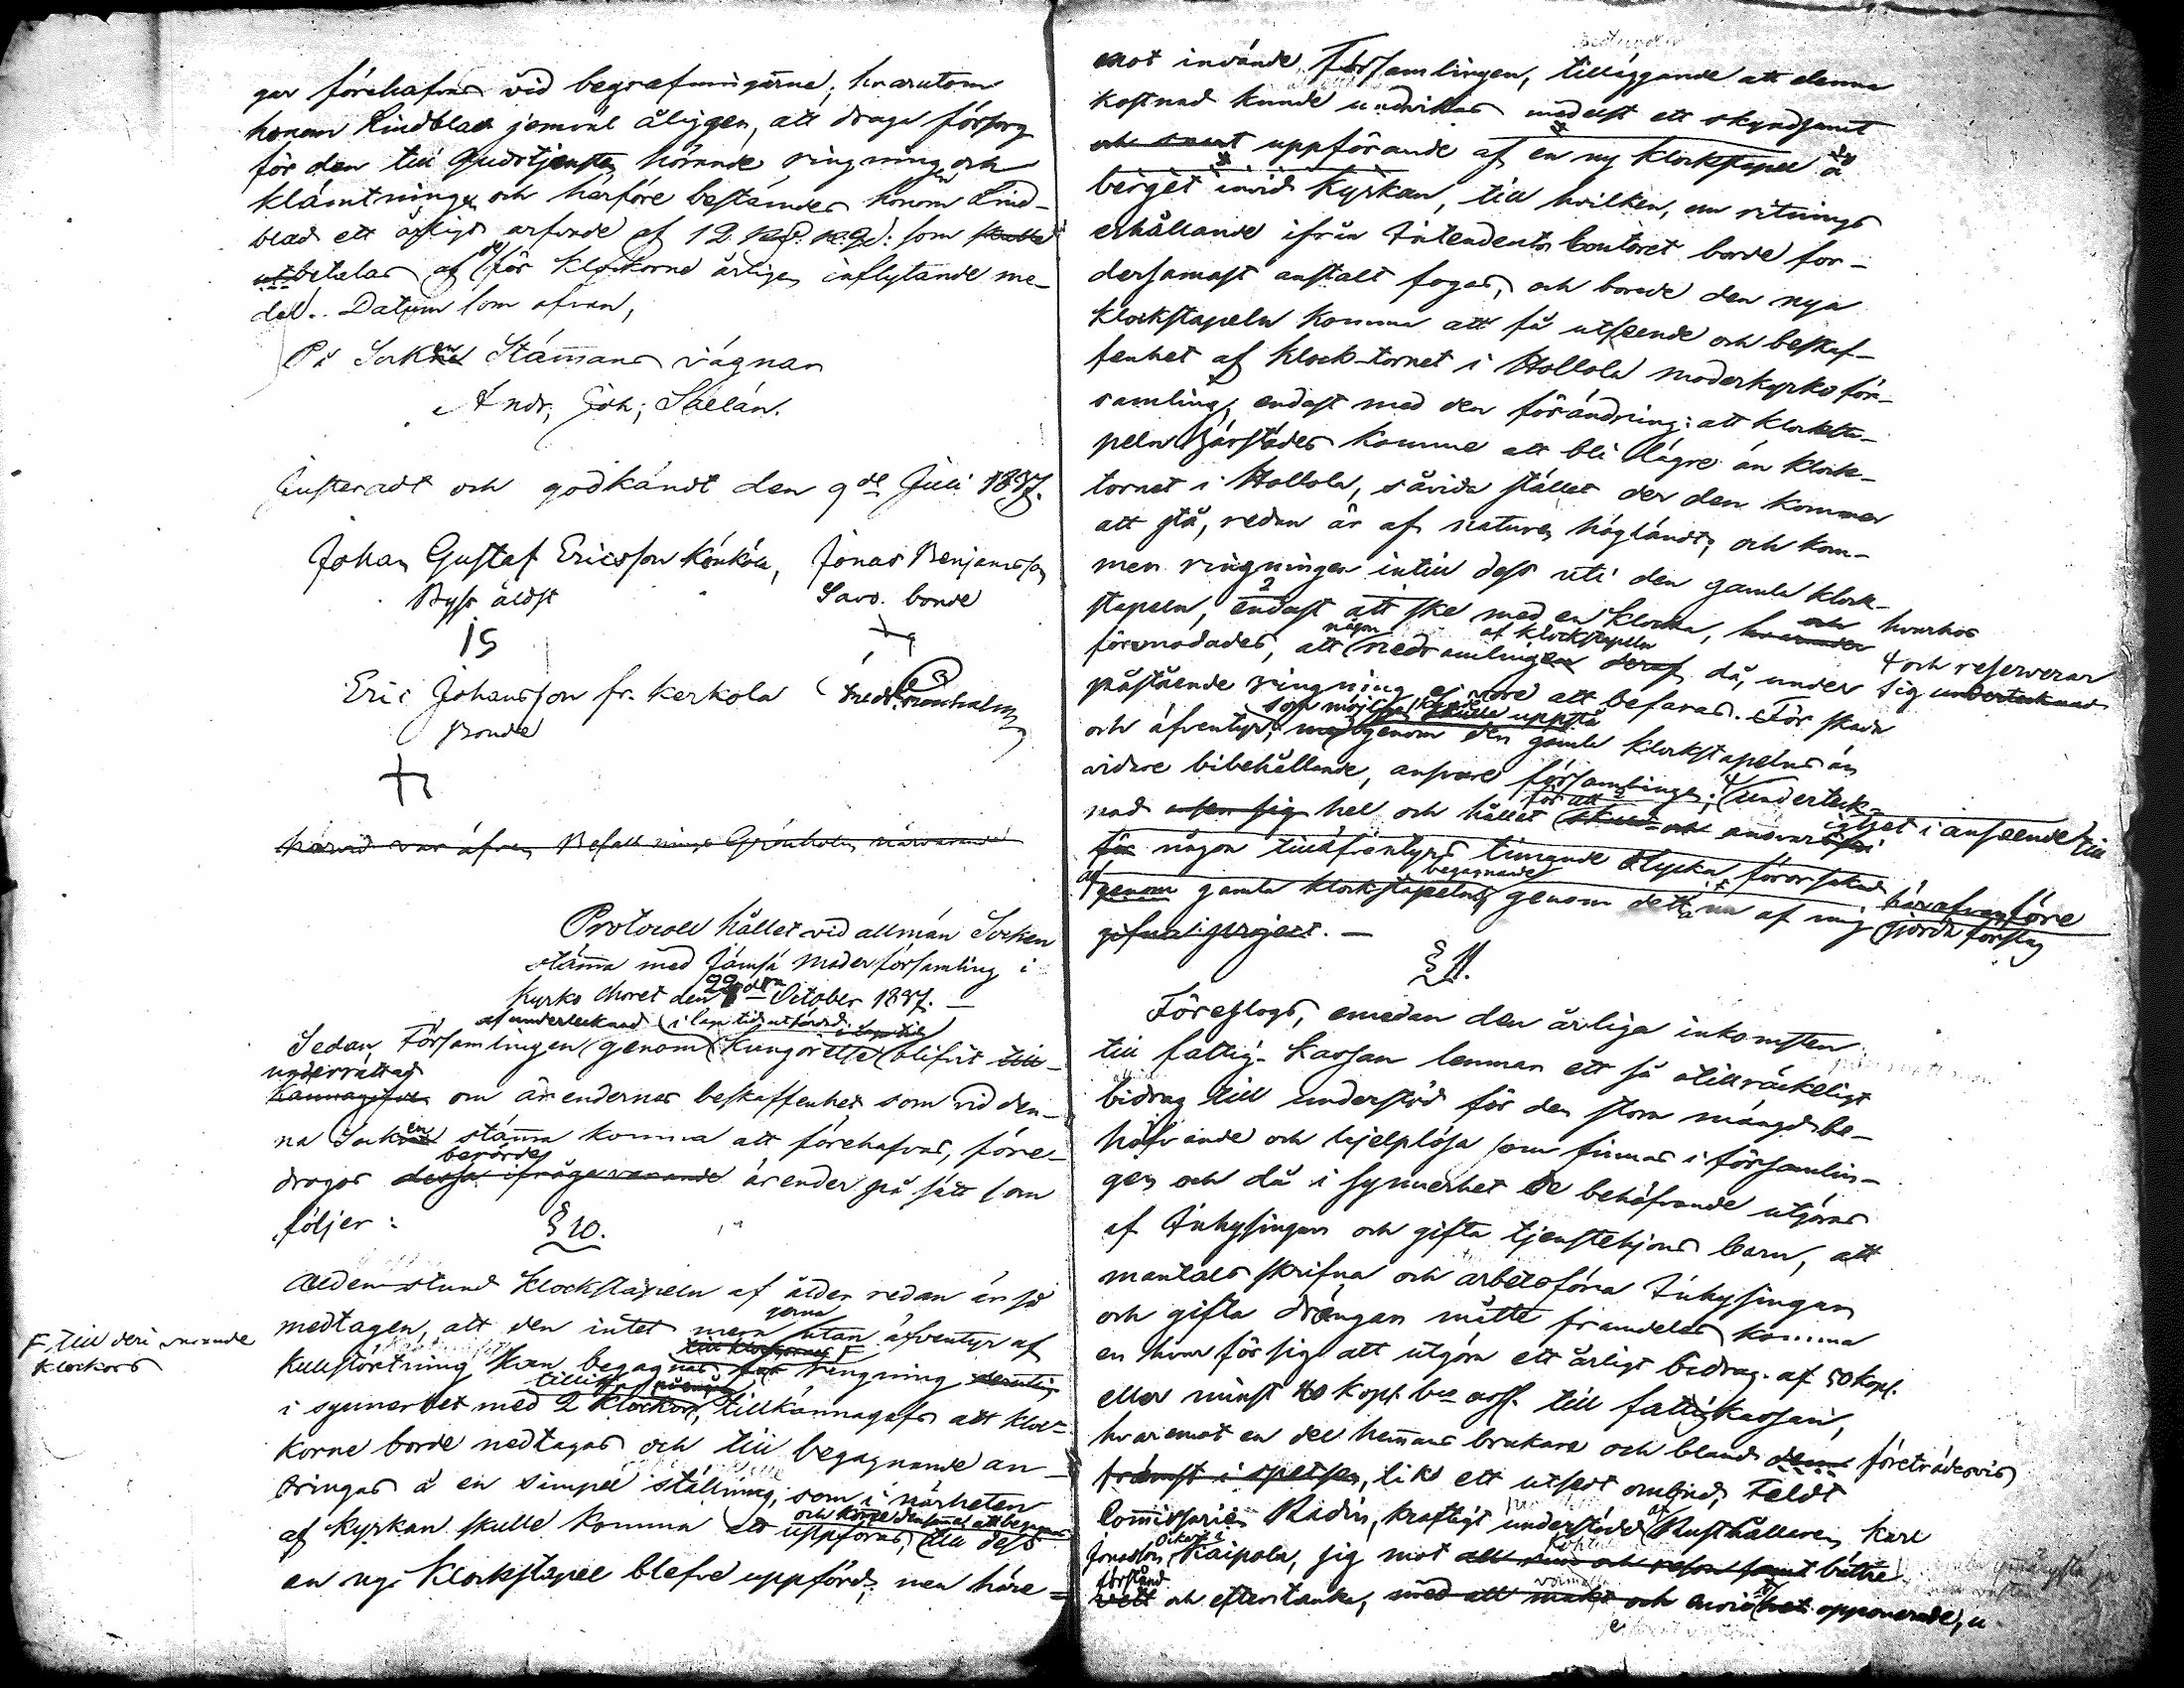 gar förehafvas vid begrafningarna; hvarutom
honom Lindblad jemväl åligger, att draga försorg
för den till Gudstjensten hörande ringning och
klämtningen och härföre bestämdes honom Lind-
blad ett årligt arfvode af 12 som skulle
utbetalas af de för Klockorne årligen inflytande me-
del. Datum som ofvan,
På Sockne Stämans vägnar
Andr. Joh; Saelán.
Justeradt och godkändt den 9de Juli 1837.
Johan Gustaf Ericsson Könköla, Jonas Benjaminsson
Byss äldst bonde
IS
Eric Johansson fr. Kerkola Fredr. Grönholm
Bonde
härvid var äfven Befallnings Grönholm närvarande
Protocoll hållet vid allmän Socken
stäma med Jämsä Moderförsamling i
Kyrko Choret den 22ndra October 1837. —
af undertecknad i laga tid utfärdad
Sedan Församlingen genom Kungörelse blifvit till-
underrättad
kännagifven om ärendernas beskaffenhet som vid den-
na Sockne stäma komma att förehafvas, före-
berörde
drogos dessa ifrågavarande ärender på sätt som
följer:
§ 10.
Alldenstund Klockstapeln af ålder redan är så
medtagen, att den intet mera utan äfventyr af
F till deri varande
klockors
kullstörtning kan begagnas för ringning
i synnerhet med 2 klockor, tillkännagafs att kloc-
korne borde nedtagas och till begagnande an-
bringas å en simpel ställning, som i närheten
af Kyrkan skulle komma att uppföras, till dess
en ny Klockstapel blefve uppförd; men häre-
mot invände Församlingen, tilläggande att denna
kostnad kunde undvikas medelst ett skyndsamt
och snart uppförande af en ny klockstapel å
berget invid Kyrkan, till hvilken, en ritnings
erhållande ifrån Intendents Contoret borde for-
dersamast anstalt fogas, och borde den nya
klockstapeln komma att få utseende och beskaf-
fenhet af klock-tornet i Hollola moderkyrko för-
samling, endast med den förändring: att klocksta-
peln härstädes komme att bli lägre än klock-
tornet i Hollola, såvida stället der den kommer
att stå, redan är af naturen högländt; och kom-
mer ringningen intill dess uti den gamla klock-
stapeln, endast att ske med en klocka, och hvarhos
någon af klockstapeln
förmodades, att nedramlingen deraf då, under
4 och reserverar
sig undertecknad
påstående ringning ej vore att befaras. För skada
och äfventyr, som möjligen skulle uppstå genom den gamla klockstapelns än
vidare bibehållande, ansvare församlingen; underteck-
nad hel och hållet för att ansvar i anseende till
för någon tilläfventyrs timande olycka, förorsakad
af gamla klockstapelns begagnande genom af mig gjorda förslag
gifna project. —
§ 11.
Föreslogs, emedan den årliga inkomsten
till fattig-kassan lemnar ett så otillräckeligt
bidrag till understöd för den stora mängd be-
höfvande och hjelplösa som finnas i församlin-
gen och då i synnerhet de behöfvande utgöras
af Inhysingars och gifta tjenstehjons barn, att
mantals skrifna och arbetsföra Inhysingar
och gifta drängar måtte framdeles komma
en hvar för sig att utgöra ett årligt bidrag af 50 kop.
eller minst 40 kop. till fattigkassan,
hvaremot en del hemans brukare och bland dem företrädesvis
främst i spetsen, likt ett utsedt ombud, Feldt
Comissarien Radin, kraftigt understödd af Rusthållaren Karl
Jonasson Kaipola, sig mot bättre
förstånd
vett och eftertanke, med all makt och opponerade, u